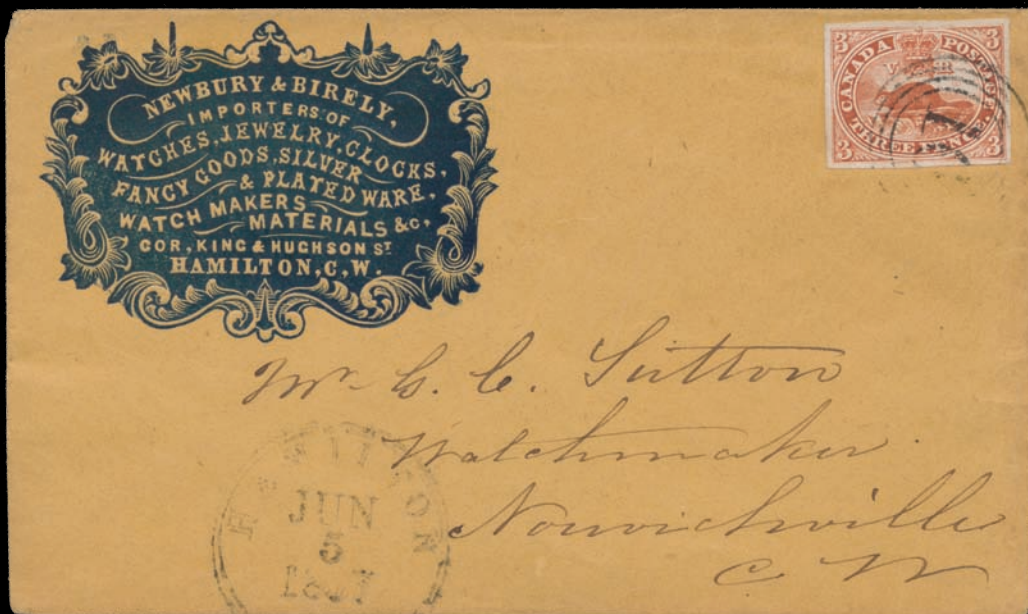 NEWBURY & BIRELY,
IMPORTERS OF
WATCHES, JEWELRY, CLOCKS,
FANCY GOODS, SILVER
& PLATED WARE,
WATCH MAKERS
MATERIALS &c,
COR, KING & HUGHSON ST
HAMILTON, C, W.
3 CANADA POSTAGE. 3
V R
3 THREE PENCE 3
Mr. G. C. Sutton
Watchmaker
Norwichville
C W
HAMILTON
JUN
5
1857